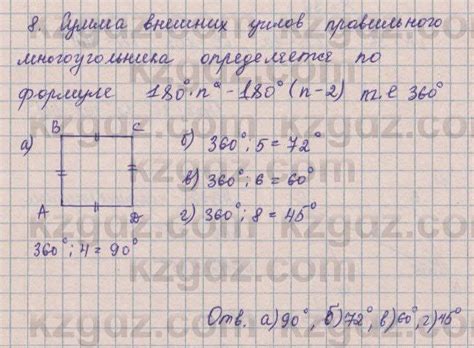 8. Сумма внешних углов правильного
многоугольника определяется по
формуле 180°·n - 180°(n-2) т.е 360°
а)
B C
A D
360° : 4 = 90°
б) 360° : 5 = 72°
в) 360° : 6 = 60°
г) 360° : 8 = 45°
Отв. а) 90°, б) 72°, в) 60°, г) 45°
kzgaz.com